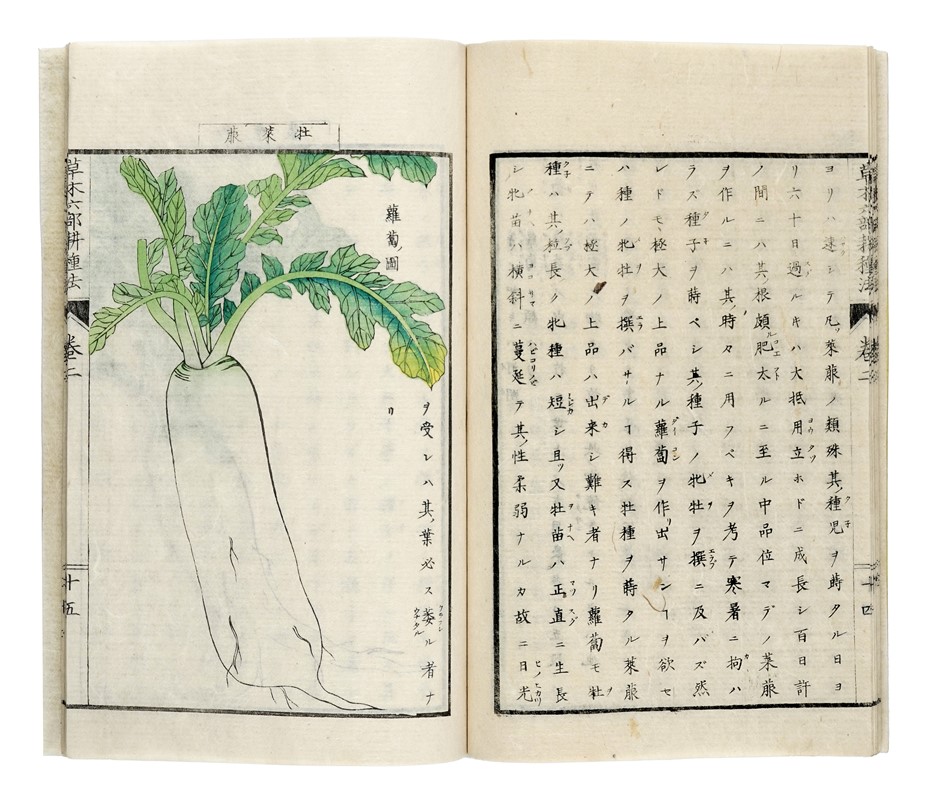 草木六部耕種法 卷二 十四
ヨリハ速シテ凡ソ萊菔ノ類殊其ノ種児ヲ蒔タル日ヨ
リ六十日過ルキハ大抵用立ホドニ成長シ百日許
ノ間ニハ其根頗肥太ルニ至ル中品位マデノ萊菔
ヲ作ルニハ其ノ時々ニ用フベキヲ考テ寒暑ニ拘ハ
ラズ種子ヲ蒔ベシ其ノ種子ノ牝牡ヲ撰ニ及バズ然
レドモ極大ノ上品ナル蘿蔔ヲ作リ出サンヿヲ欲セ
ハ種ノ牝牡ヲ撰バサルヿ得ス牡種ヲ蒔タル萊菔
ニテハ極大ノ上品ハ出来シ難キ者ナリ蘿蔔モ牡
種ハ其ノ粒長ク牝種ハ短シ且ツ又牡苗ハ正直ニ生長
シ牝苗ハ横斜ニ蔓延テ其ノ性柔弱ナルカ故ニ日光
牡萊菔
ヲ受レハ其ノ葉必ス萎ル者ナ
リ
蘿蔔ノ圖
草木六部耕種法 卷二 十五